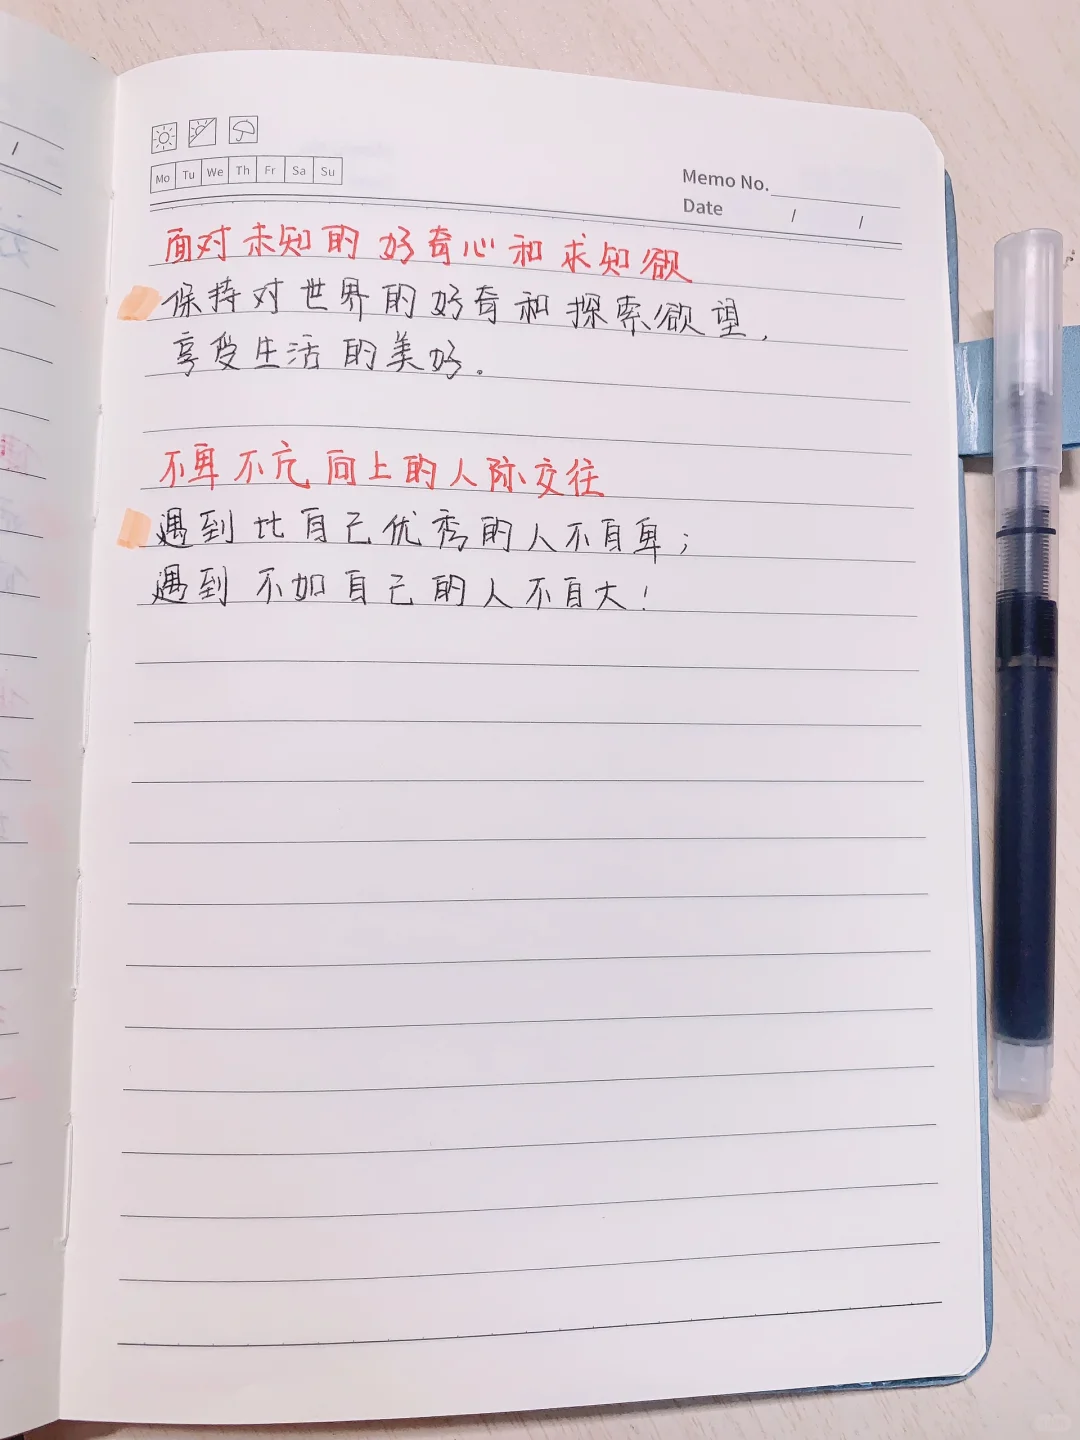 Mo Tu We Th Fr Sa Su
Memo No.
Date / /
面对未知的好奇心和求知欲
保持对世界的好奇和探索欲望,
享受生活的美好.
不卑不亢向上的人际交往
遇到比自己优秀的人不自卑;
遇到不如自己的人不自大!